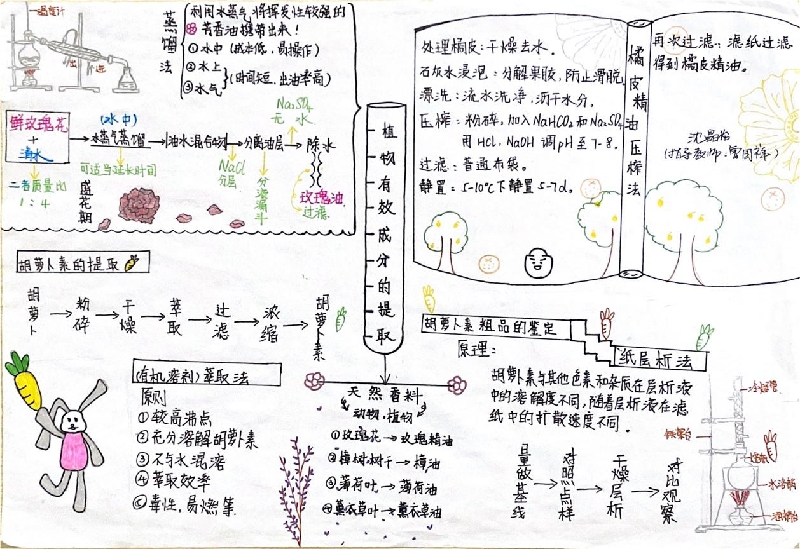 温度计
蒸馏法
利用水蒸气将挥发性较强的
芳香油携带出来!
①水中(成本低,易操作)
②水上
③水气
(时间短,出油率高)
鲜玫瑰花
+
清水
(水中)
水蒸气蒸馏
油水混合物
分离油层
除水
Na₂SO₄
无水
二者质量比
1:4
可适当延长时间
盛花期
NaCl
分层
分液漏斗
玫瑰油
过滤
植物有效成分的提取
橘皮精油压榨法
处理橘皮:干燥去水.
石灰水浸泡:分解果胶,防止滑脱
漂洗:流水洗净,沥干水分.
压榨:粉碎,加入NaHCO₃和Na₂SO₄
用HCl、NaOH调pH至7-8.
过滤:普通布袋.
静置:5-10℃下静置5-7d。
再次过滤:滤纸过滤
得到橘皮精油.
胡萝卜素的提取
胡萝卜
粉碎
干燥
萃取
过滤
浓缩
胡萝卜素
(有机溶剂)萃取法
原则
①较高沸点
②充分溶解胡萝卜素
③不与水混溶
④萃取效率
⑤毒性,易燃等
天然香料
动物、植物
①玫瑰花→玫瑰精油
②樟树树干→樟油
③薄荷叶→薄荷油
④薰衣草叶→薰衣草油
胡萝卜素粗品的鉴定
纸层析法
原理:
胡萝卜素与其他色素和杂质在层析液
中的溶解度不同,随着层析液在滤
纸中的扩散速度不同.
量做基线
对照点样
干燥层析
对比观察
冷凝管
铁架台
水浴锅
酒精灯